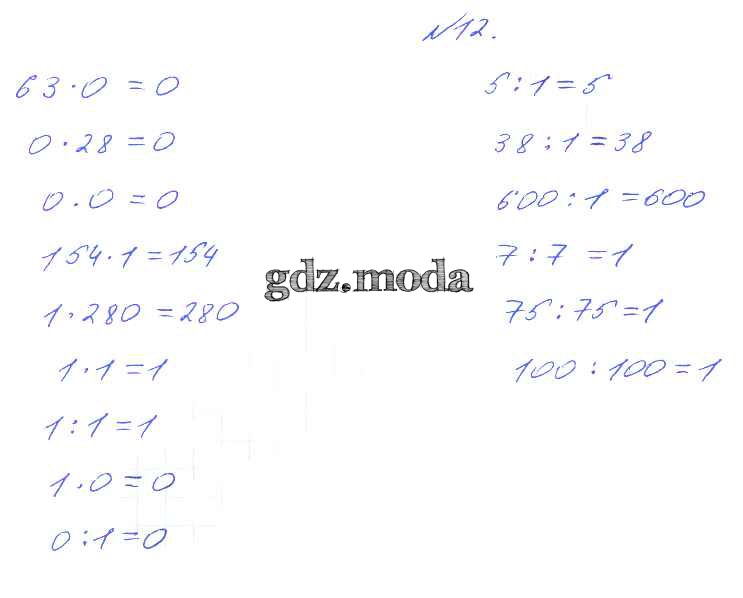 №12.
63·0 = 0
0·28 = 0
0·0 = 0
154·1 = 154
1·280 = 280
1·1 = 1
1:1 = 1
1·0 = 0
0:1 = 0
5:1 = 5
38:1 = 38
600:1 = 600
7:7 = 1
75:75 = 1
100:100 = 1
gdz.moda